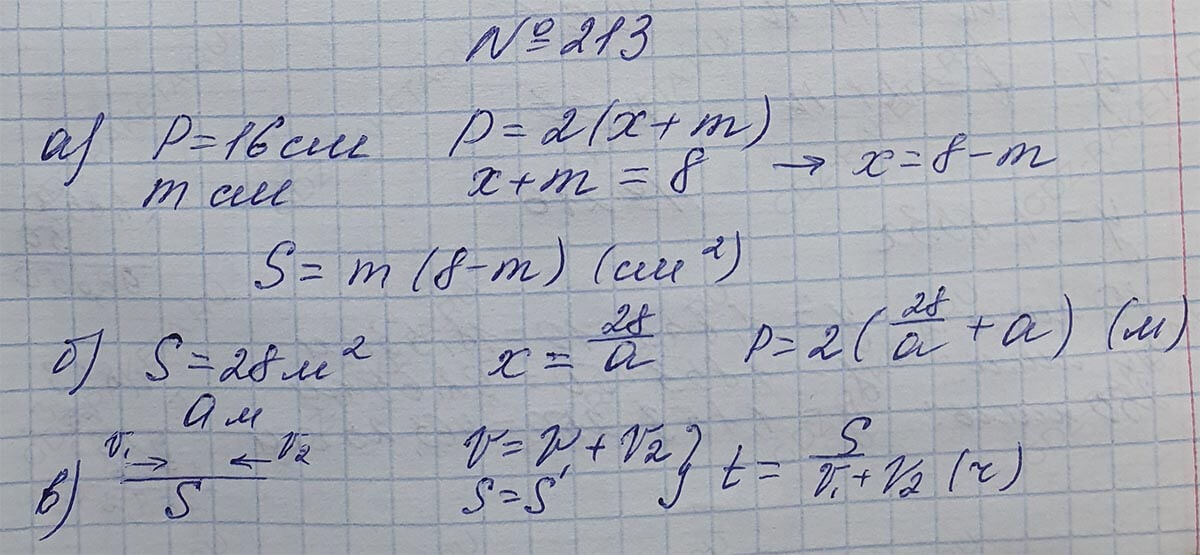 №213
а) P=16см P=2(x+m)
m см x+m=8 → x=8-m
S=m(8-m) (см²)
б) S=28м² x=28/a P=2(28/a+a) (м)
a м
в) v₁ → ← v₂ v=v₁+v₂} t=S/(v₁+v₂) (ч)
S S=S